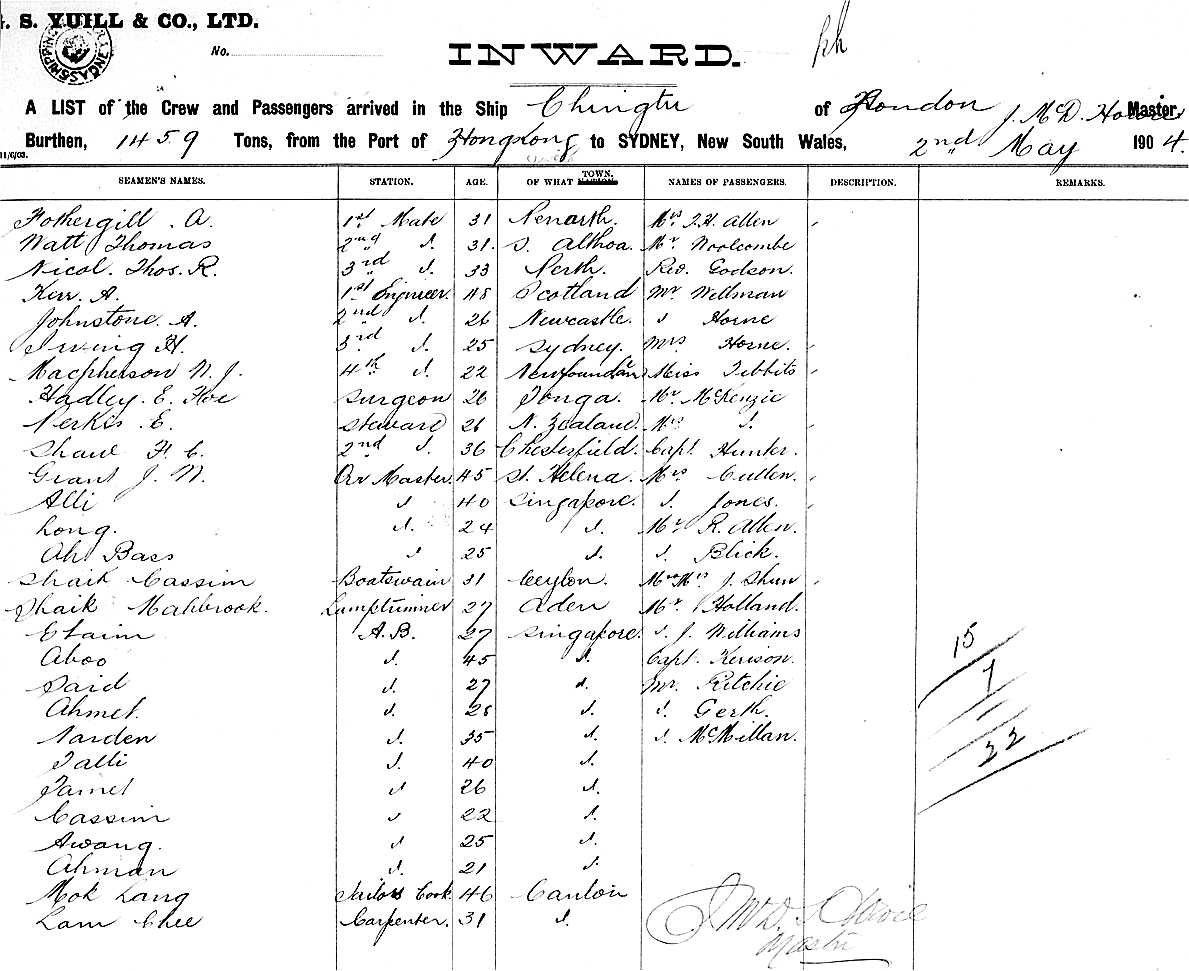 . S. YUILL & CO., LTD.
No.
INWARD.
A LIST of the Crew and Passengers arrived in the Ship Chingtu of London J. McD. Master,
Burthen, 1459 Tons, from the Port of Hongkong to SYDNEY, New South Wales, 2nd May 1904.
11/6/03.
SEAMEN'S NAMES. STATION. AGE. OF WHAT TOWN. NAMES OF PASSENGERS. DESCRIPTION. REMARKS.
Fothergill A. 1st Mate 31 Penarth. Mrs J.H. Allen
Watt Thomas 2nd d. 31. S. Mr Woolcombe
Nicol. Thos. R. 3rd d. 33 Perth. Rev. Godson.
Kerr. A. 1st Engineer. 48 Scotland Mr Wellman
Johnstone. A. 2nd d. 26 Newcastle. d Horne
Irving H. 3rd d. 25 Sydney. Mrs Horne.
Macpherson N. J. 4th d. 22 Miss Tibbits
Hadley. E. Surgeon 26 Tonga. Mr McKenzie
Perkis. E. Steward 26 N. Zealand. Mrs d.
Shaw F. C. 2nd d. 36 Chesterfield. Capt. Hunter.
Grant J. N. Qr Master. 45 St. Helena. Mrs Cullen.
Alli d 40 Singapore. d. Jones.
Long. d. 24 d. Mr R. Allen.
Ah Bass d 25 d. d. Blick.
Shaik Cassim Boatswain 31 Ceylon. Mr Mrs J. Shun
Shaik Mahbrook. Lamptrimmer 27 Aden Mr Holland.
A.B. 27 Singapore. d. J. Williams
Aboo d. 45 d. Capt.
Said d. 27 d. Mr. Ritchie
Ahmet. d. 28 d. d. Gerth.
Narden d. 35 d. d. McMillan.
Talli d. 40 d.
Jamel d 26 d.
Cassim d 22 d.
Awang. d 25 d.
Ahman d. 21 d.
Mok Lang Sailors Cook. 46 Canton
Lam Chee Carpenter. 31 d.
15
7
22
Master